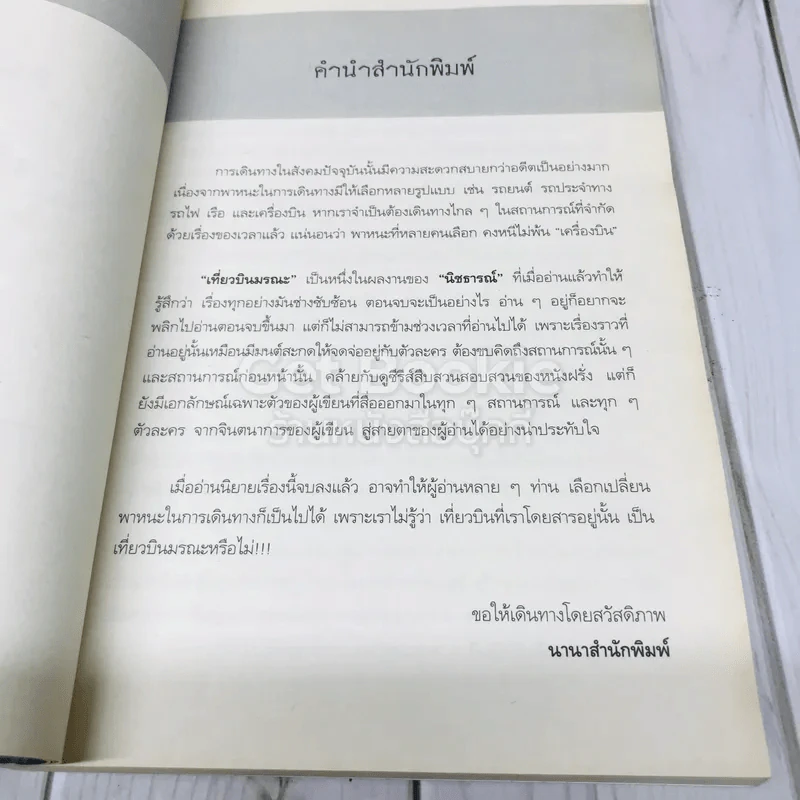 คำนำสำนักพิมพ์
การเดินทางในสังคมปัจจุบันนั้นมีความสะดวกสบายกว่าอดีตเป็นอย่างมาก
เนื่องจากพาหนะในการเดินทางมีให้เลือกหลายรูปแบบ เช่น รถยนต์ รถประจำทาง
รถไฟ เรือ และเครื่องบิน หากเราจำเป็นต้องเดินทางไกล ๆ ในสถานการณ์ที่จำกัด
ด้วยเรื่องของเวลาแล้ว แน่นอนว่า พาหนะที่หลายคนเลือก คงหนีไม่พ้น “เครื่องบิน”
“เที่ยวบินมรณะ” เป็นหนึ่งในผลงานของ “นิชธารณ์” ที่เมื่ออ่านแล้วทำให้
รู้สึกว่า เรื่องทุกอย่างมันช่างซับซ้อน ตอนจบจะเป็นอย่างไร อ่าน ๆ อยู่ก็อยากจะ
พลิกไปอ่านตอนจบขึ้นมา แต่ก็ไม่สามารถข้ามช่วงเวลาที่อ่านไปได้ เพราะเรื่องราวที่
อ่านอยู่นั้นเหมือนมีมนต์สะกดให้จดจ่ออยู่กับตัวละคร ต้องขบคิดถึงสถานการณ์นั้น ๆ
และสถานการณ์ก่อนหน้านั้น คล้ายกับดูซีรีส์สืบสวนสอบสวนของหนังฝรั่ง แต่ก็
ยังมีเอกลักษณ์เฉพาะตัวของผู้เขียนที่สื่อออกมาในทุก ๆ สถานการณ์ และทุก ๆ
ตัวละคร จากจินตนาการของผู้เขียน สู่สายตาของผู้อ่านได้อย่างน่าประทับใจ
Get Bookie
ร้านหนังสือบุ๊กกี้
เมื่ออ่านนิยายเรื่องนี้จบลงแล้ว อาจทำให้ผู้อ่านหลาย ๆ ท่าน เลือกเปลี่ยน
พาหนะในการเดินทางก็เป็นไปได้ เพราะเราไม่รู้ว่า เที่ยวบินที่เราโดยสารอยู่นั้น เป็น
เที่ยวบินมรณะหรือไม่!!!
ขอให้เดินทางโดยสวัสดิภาพ
นานาสำนักพิมพ์